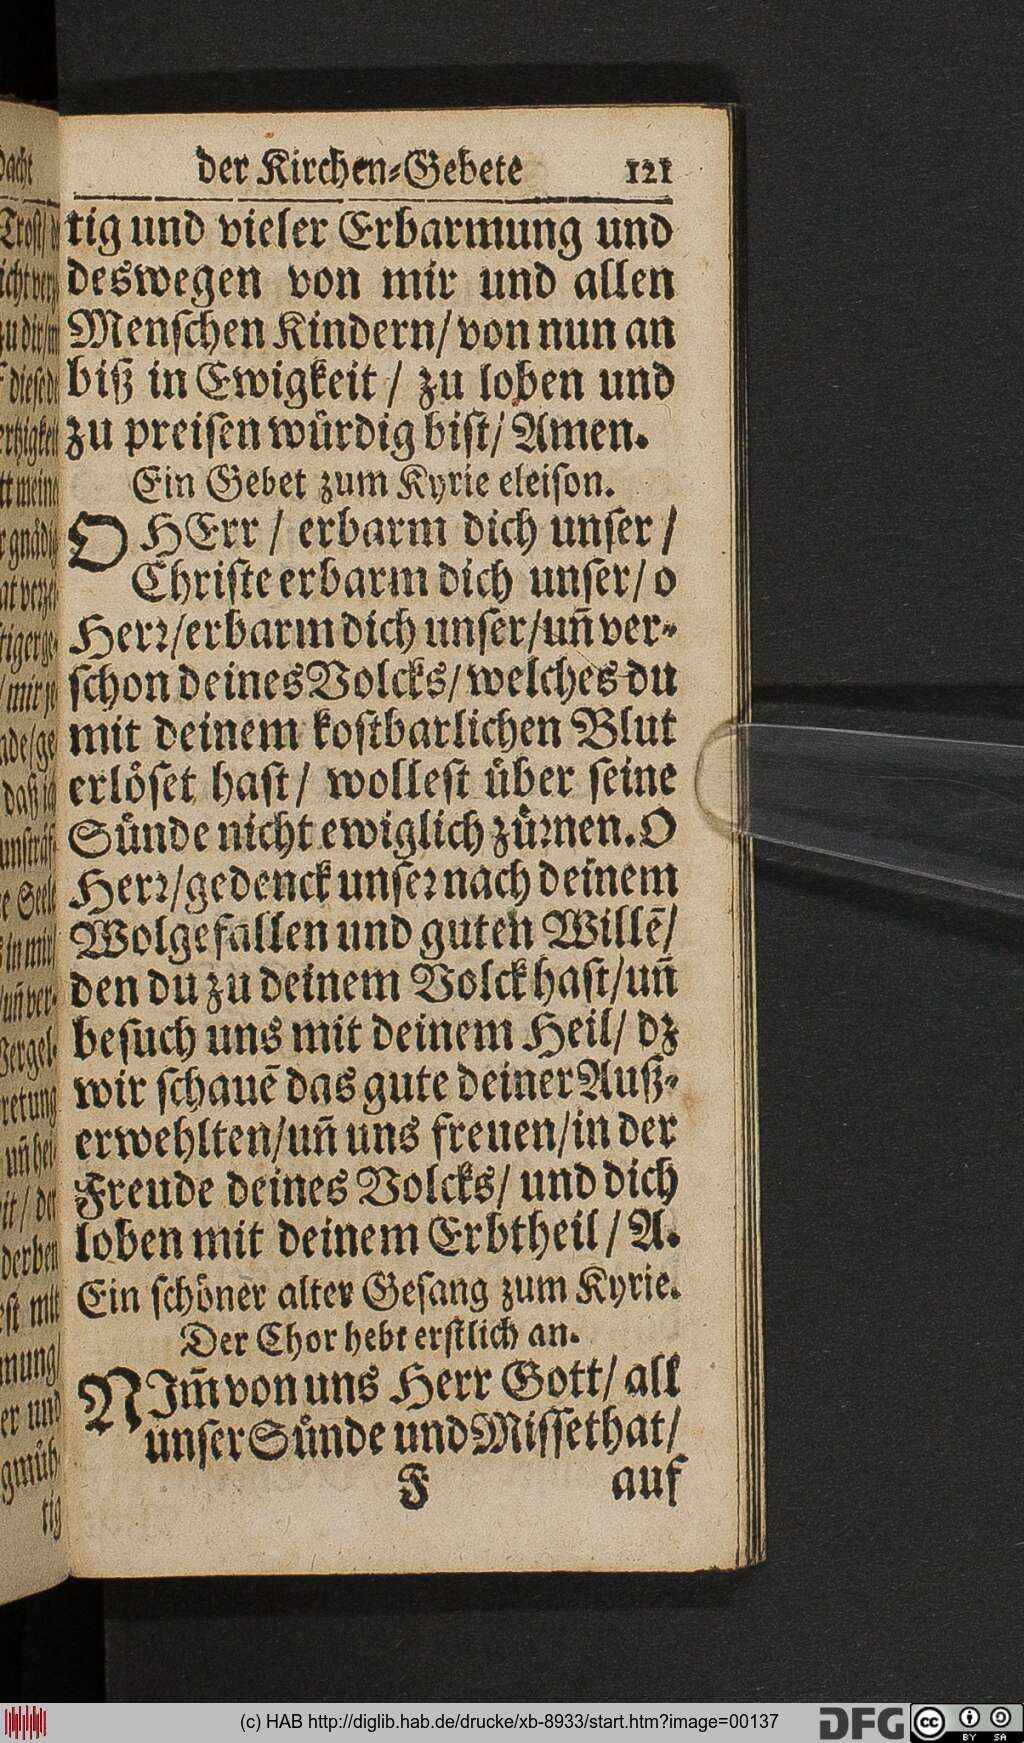 der Kirchen-Gebete 121
tig und vieler Erbarmung und
deswegen von mir und allen
Menschen Kindern/ von nun an
biß in Ewigkeit / zu loben und
zu preisen würdig bist/ Amen.
Ein Gebet zum Kyrie eleison.
O HErr / erbarm dich unser /
Christe erbarm dich unser/ o
Herr/erbarm dich unser/uñ ver-
schon deines Volcks/ welches du
mit deinem kostbarlichen Blut
erlöset hast/ wollest über seine
Sünde nicht ewiglich zürnen. O
Herr/gedenck unser nach deinem
Wolgefallen und guten Willē/
den du zu deinem Volck hast/uñ
besuch uns mit deinem Heil/ dz
wir schauē das gute deiner Auß-
erwehlten/uñ uns freuen/in der
Freude deines Volcks/ und dich
loben mit deinem Erbtheil / A.
Ein schöner alter Gesang zum Kyrie.
Der Chor hebt erstlich an.
NIm̄ von uns Herr Gott/ all
unser Sünde und Missethat/
F auf
(c) HAB http://diglib.hab.de/drucke/xb-8933/start.htm?image=00137
DFG
cc BY SA